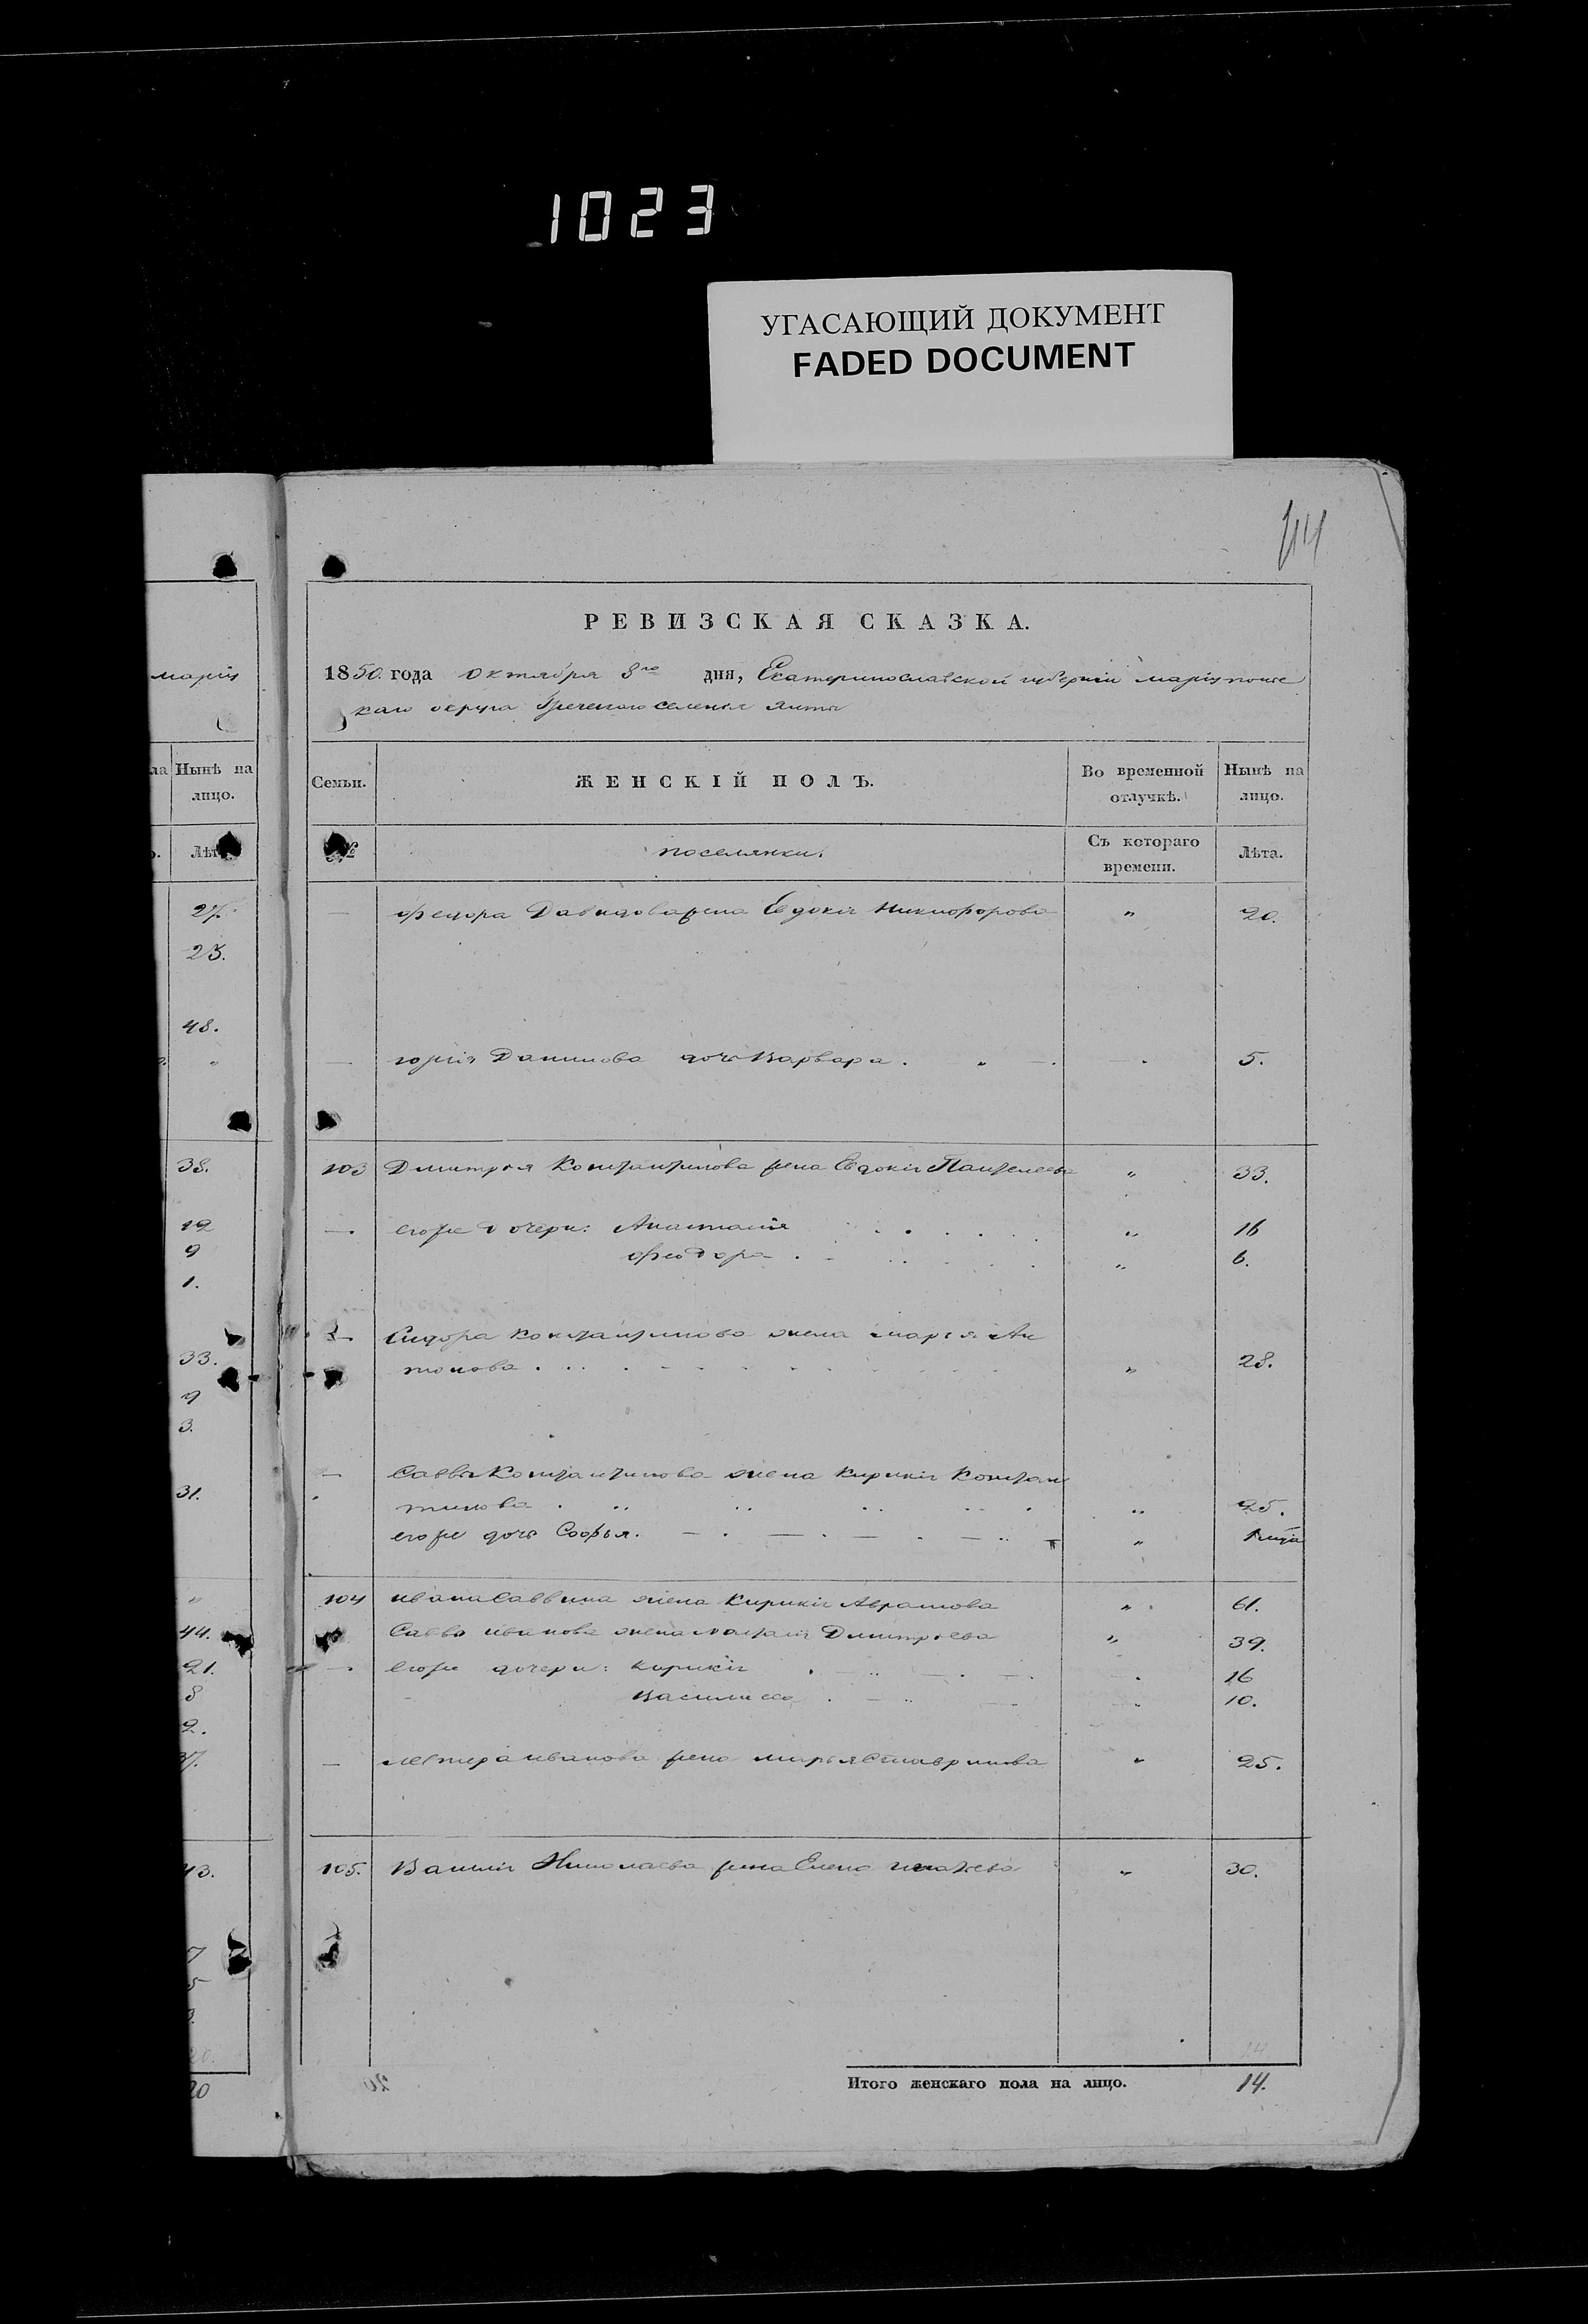 1023
УГАСАЮЩИЙ ДОКУМЕНТ
FADED DOCUMENT
114
РЕВИЗСКАЯ СКАЗКА.
марiу
1850 года октября 8го дня, Екатеринославской губернiи марiупольс
каго округа Греческаго селенiя Ялты
Нынѣ на лицо.
Семьи.
ЖЕНСКІЙ ПОЛЪ.
Во временной отлучкѣ.
Нынѣ на лицо.
Лѣта
№
поселянки.
Съ котораго времени.
Лѣта.
27. — Федора Давидова жена Евдокiя Никифорова " 20.
23.
48.
" — Данилова дочь Варвара . " — . 5.
38. 103 Дмитрiя Константинова жена Евдокiя Пантелеева " 33.
19 — . егоже дочери: Анастасiя " 16
9 Феодора . " 6.
1.
Сидора Константинова жена марiя Ан
33. тонова . . . " 28.
9
3.
— Саввы Константинова жена Кирикiя Констан
31. тинова . " 25.
егоже дочь Софья. — . — . — . — "
" 104 ивана Саввина жена Кирикiя Абрамова " 61.
44. Саввы иванова жена Дмитрiева " 39.
21. — . егоже дочери: Кирикiя . 16
8 Василиса . 10.
2.
37. — иванова жена Ставринова " 25.
43. 105. Василiя Николаева жена Елена " 30.
7
5
20 Итого женскаго пола на лицо. 14.